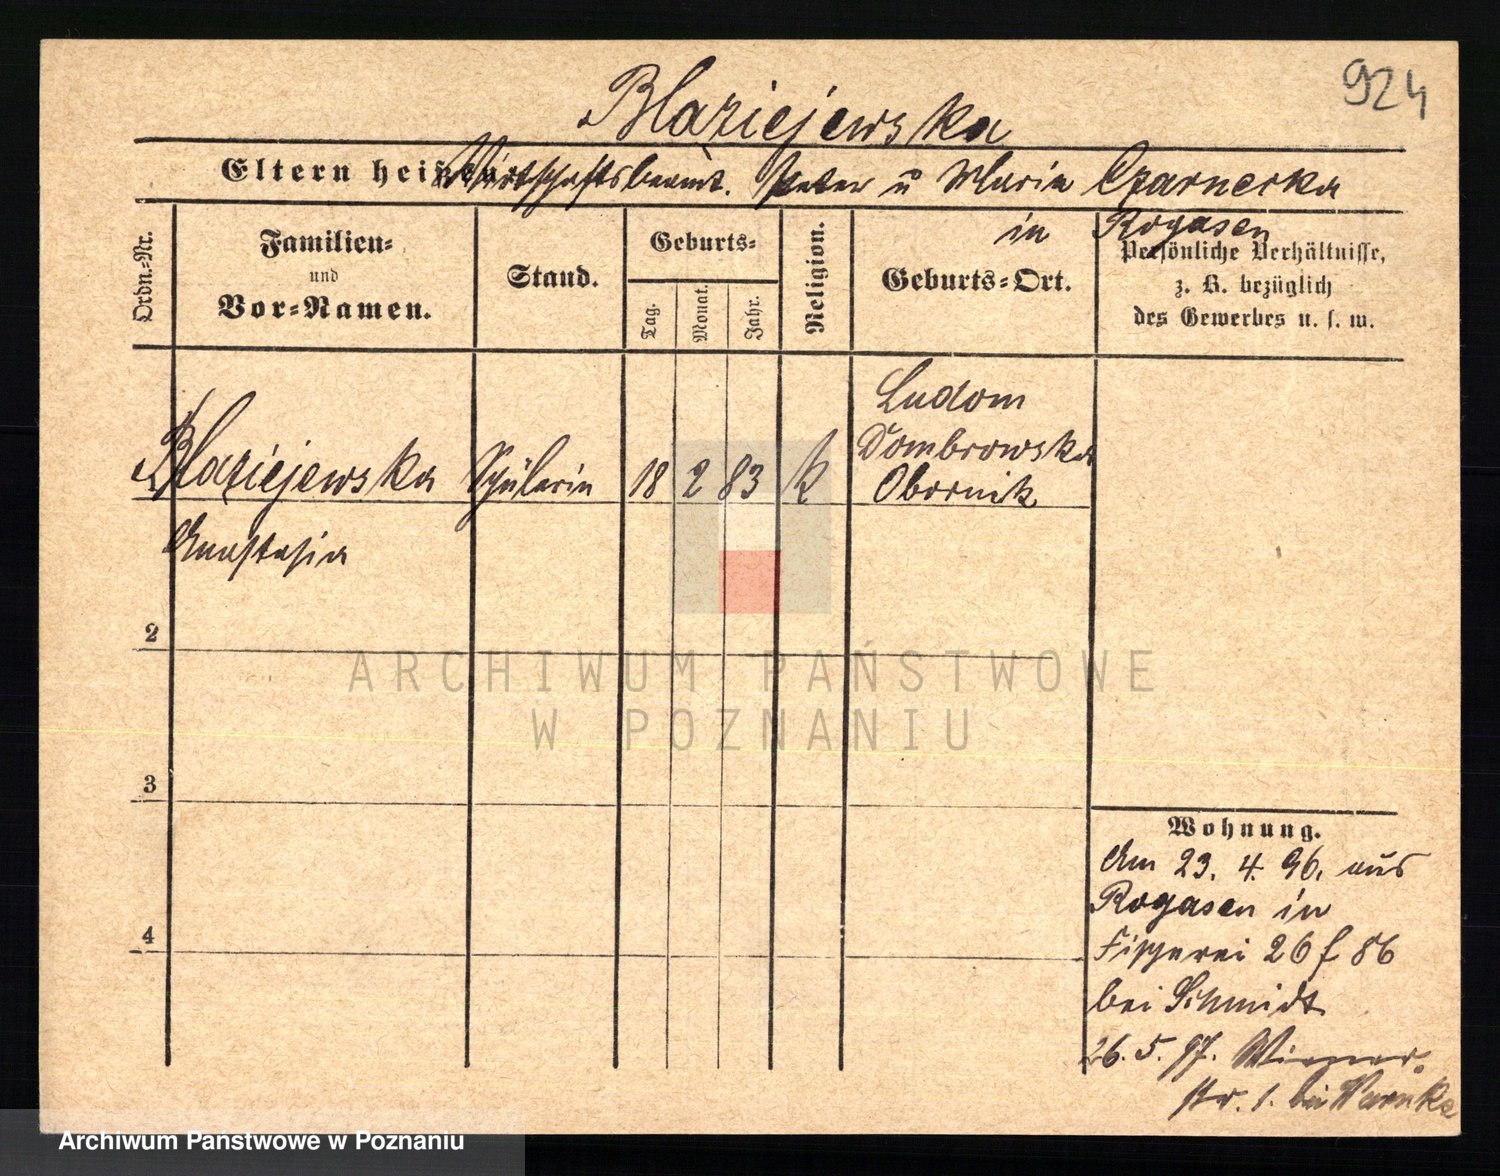 924
Blaziejewska
Eltern heißen Wirtschaftsbeamt. Peter u Maria Czarnecka
in Rogasen
Ordn.-Nr.
Familien-
und
Vor-Namen.
Stand.
Geburts-
Tag.
Monat.
Jahr.
Religion.
Geburts-Ort.
Persönliche Verhältnisse,
z. B. bezüglich
des Gewerbes u. s. w.
Ludom
Dombrowska
Blaziejewska Schülerin 18 2 83 k Obornik
Anastasia
2
3
4
ARCHIWUM PAŃSTWOWE
W POZNANIU
Wohnung.
Am 23. 4. 96. aus
Rogasen in
Fischerei 26 f 86
bei Schmidt
26. 5. 97. Wiener
str. 1. bei Warnke
Archiwum Państwowe w Poznaniu